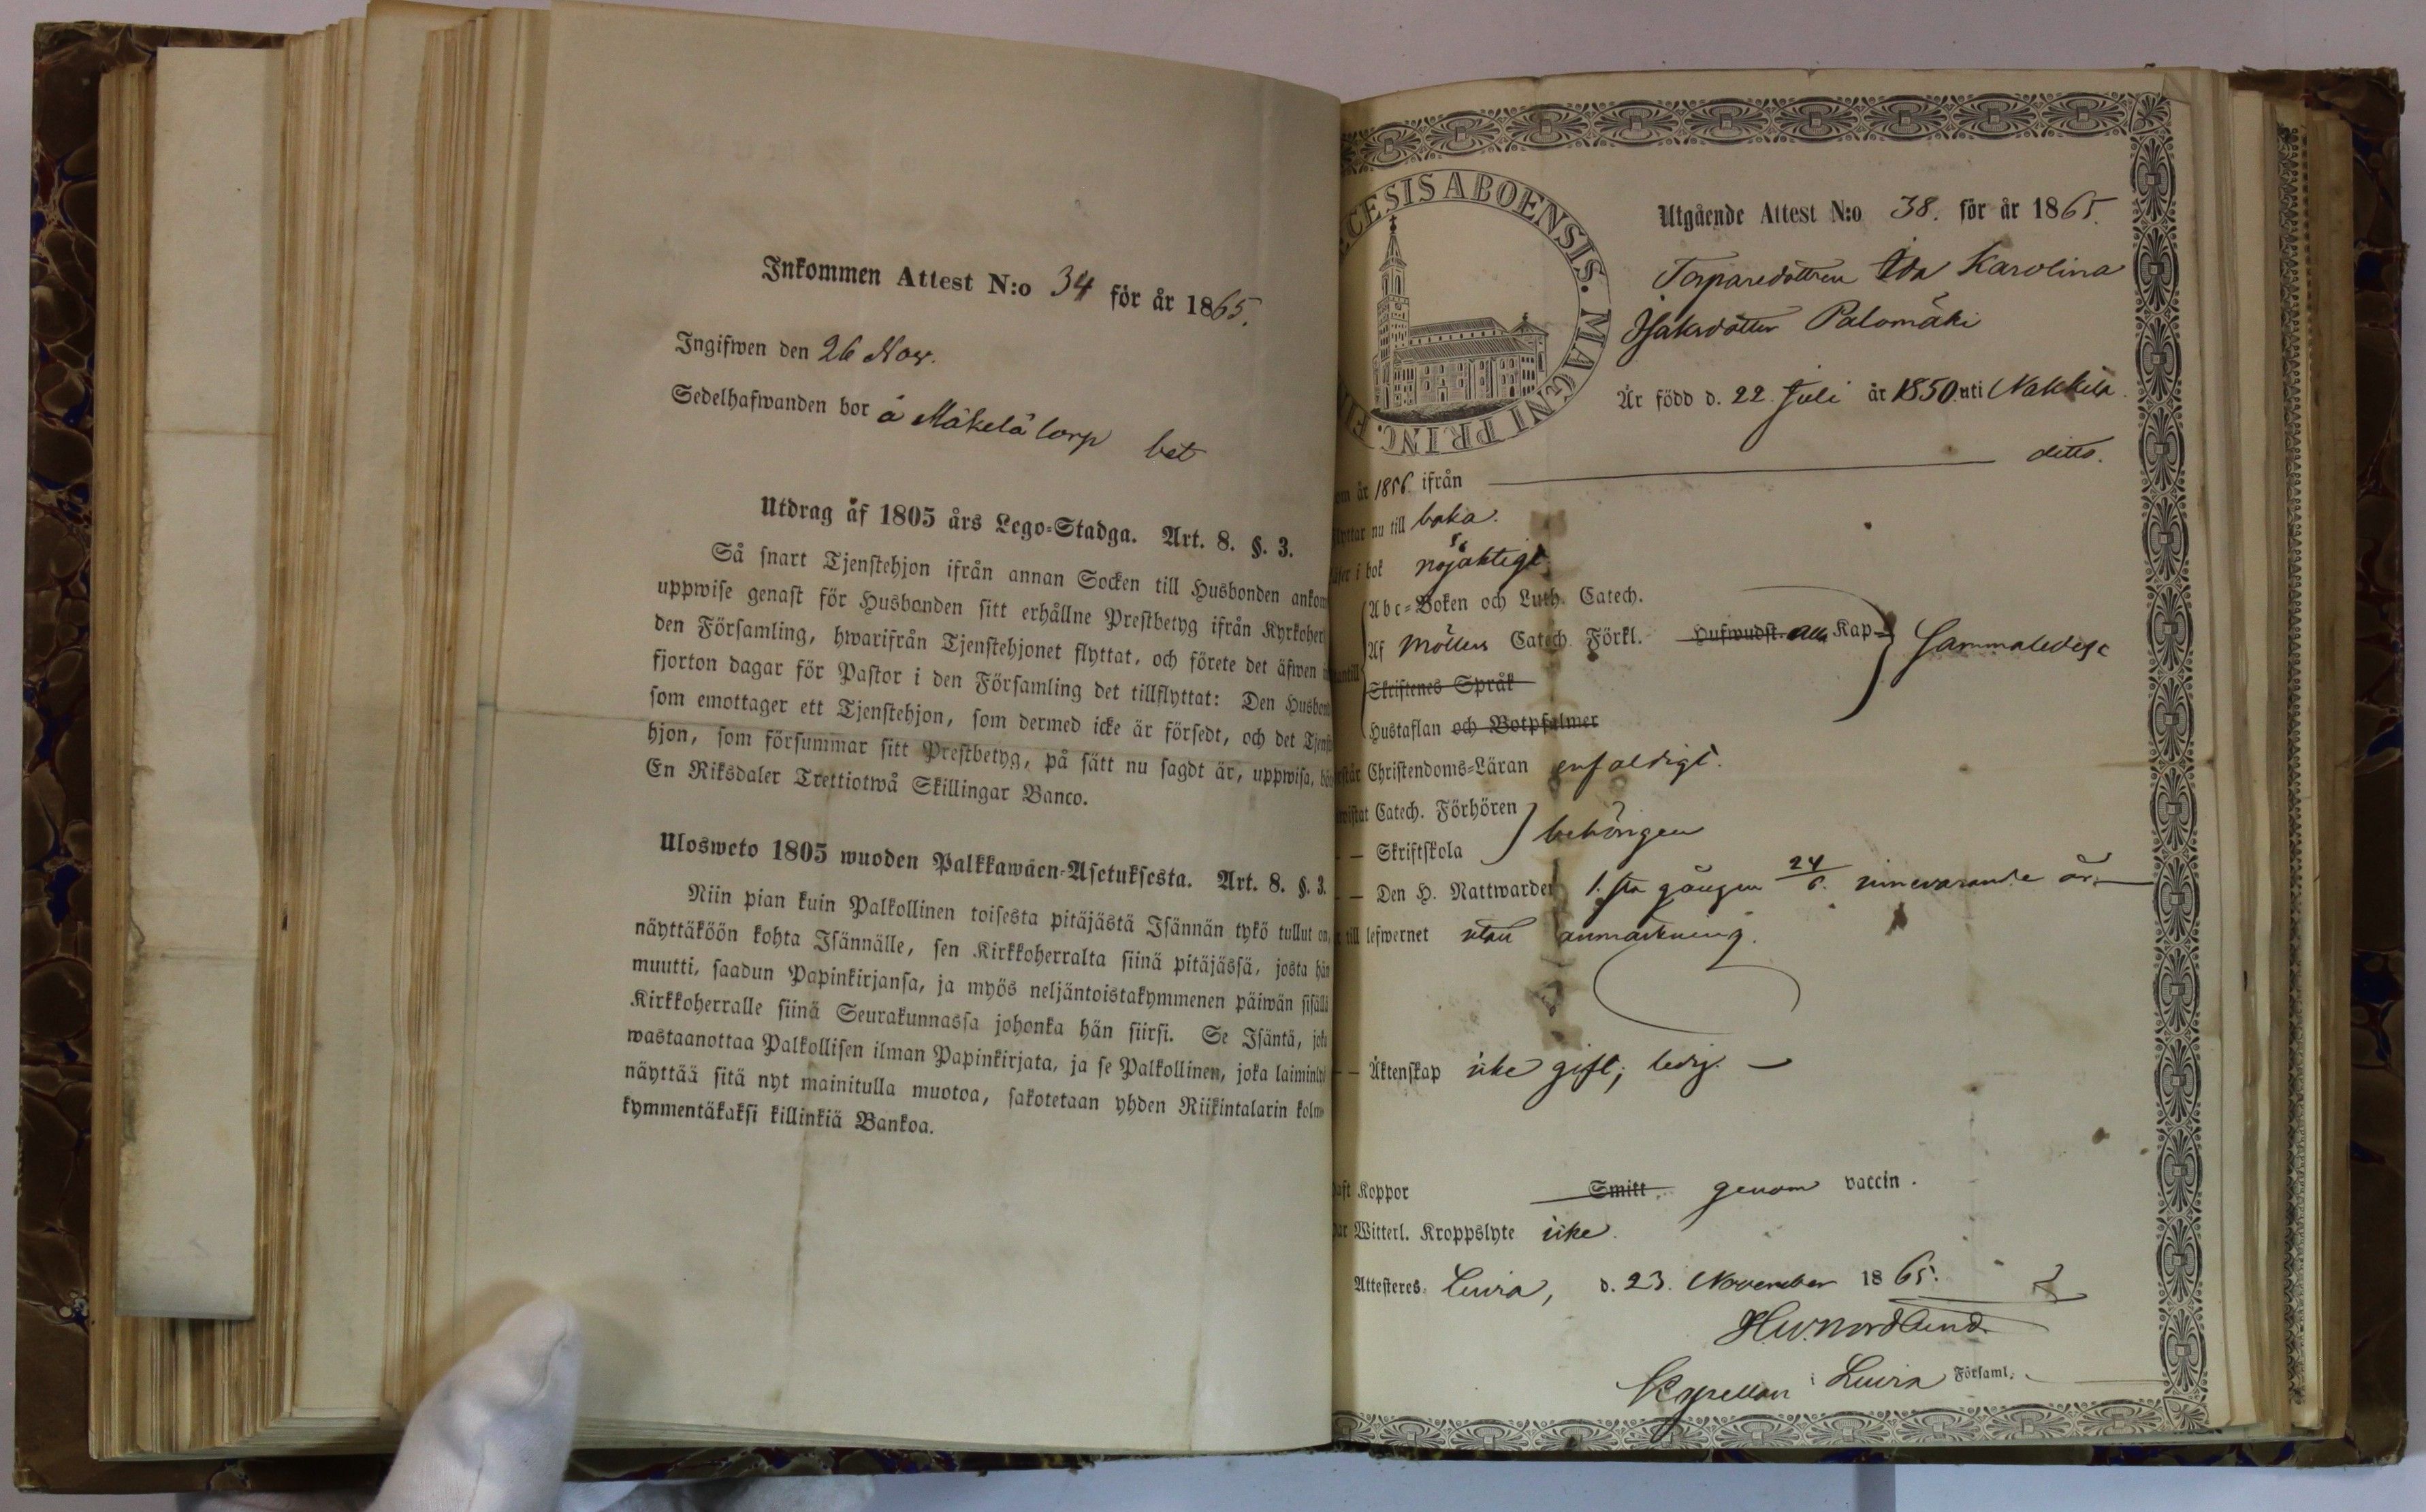 Inkommen Attest N:o 34 för år 1865.
Ingifwen den 26 Nov.
Sedelhafwanden bor å Mäkelä torp bet
Utdrag af 1805 års Lego-Stadga. Art. 8. §. 3.
Så snart Tjenstehjon ifrån annan Socken till Husbonden ankom
uppwise genast för Husbonden sitt erhållne Prestbetyg ifrån Kyrkoher
den Församling, hwarifrån Tjenstehjonet flyttat, och förete det äfwen i
fjorton dagar för Pastor i den Församling det tillflyttat: Den Husbond
som emottager ett Tjenstehjon, som dermed icke är försedt, och det Tjenst
hjon, som försummar sitt Prestbetyg, på sätt nu sagdt är, uppwisa, böt
En Riksdaler Trettiotwå Skillingar Banco.
Ulosweto 1805 wuoden Palkkawäen-Asetuksesta. Art. 8. §. 3.
Niin pian kuin Palkollinen toisesta pitäjästä Isännän tykö tullut on,
näyttäköön kohta Isännälle, sen Kirkkoherralta siinä pitäjässä, josta hän
muutti, saadun Papinkirjansa, ja myös neljäntoistakymmenen päiwän sisällä
Kirkkoherralle siinä Seurakunnassa johonka hän siirsi. Se Isäntä, joka
wastaanottaa Palkollisen ilman Papinkirjata, ja se Palkollinen, joka laiminlyö
näyttää sitä nyt mainitulla muotoa, sakotetaan yhden Riikintalarin kolm
kymmentäkaksi killinkiä Bankoa.
CESIS ABOENSIS. MAGNI PRINC. FIN
Utgående Attest N:o 38. för år 1865.
Torparedottren Ida Karolina
Isaksdotter Palomäki
Är född d. 22 Juli år 1850 uti Nakkila.
men år 1856 ifrån ditto.
flyttar nu till baka.
läser i bok nöjaktigt
Abc-Boken och Luth. Catech.
Af Möllers Catech. Förkl. Hufwudst. alla Kap
Sammaledes
Skriftenes Språk
Hustaflan och Botpsalmer
förstår Christendoms-Läran enfaldigt.
bewistat Catech. Förhören
behörigen
— Skriftskola
— Den H. Nattwarden 1.sta gången 24/6. innevarande år.
är till lefwernet utan anmärkning.
— Äktenskap icke gift; ledig.
haft Koppor Smitt. genom vaccin.
har Witterl. Kroppslyte icke.
Attesteres. Luvia, d. 23. November 1865.
H.W. Nordlund
Kapellan i Luvia Församl.